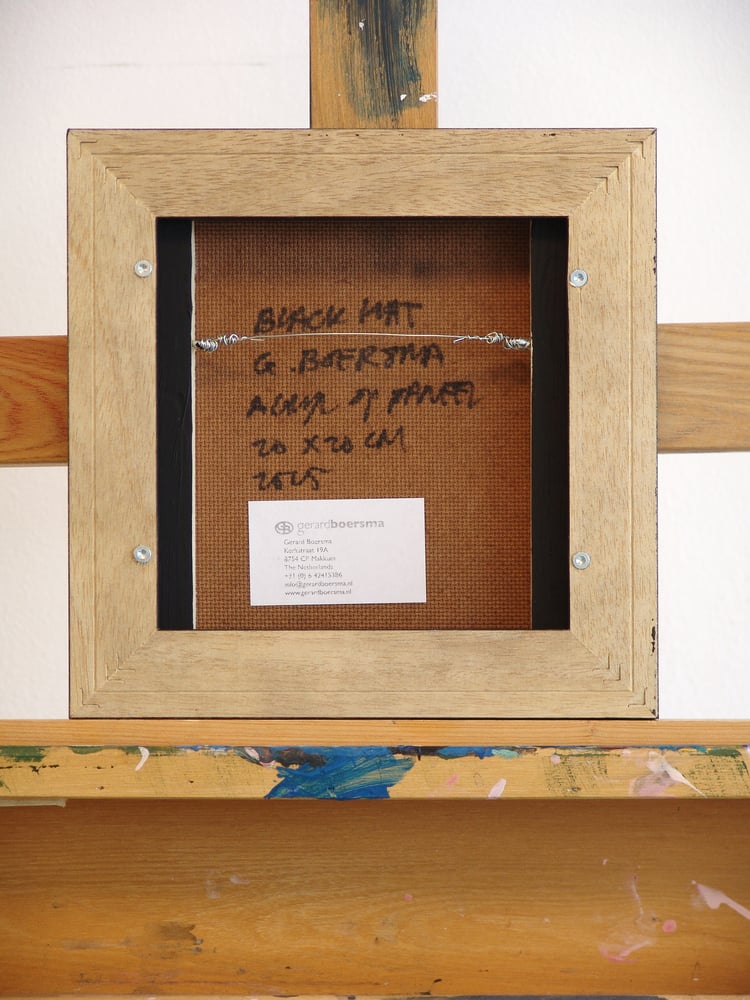 BLACK HAT
G. BOERSMA
ACRYL OP PANEEL
20 X 20 CM
2015
gerardboersma
Gerard Boersma
Kerkstraat 19A
8754 CP Makkum
The Netherlands
+31 (0) 6 42415186
info@gerardboersma.nl
www.gerardboersma.nl